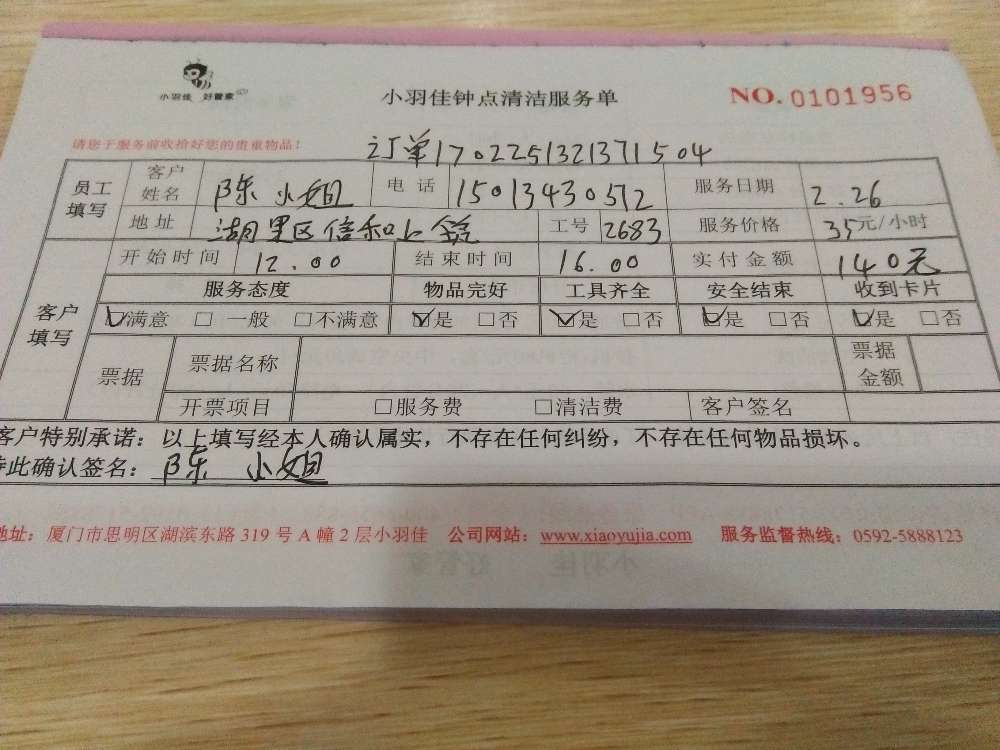 小羽佳 好管家
小羽佳钟点清洁服务单
NO. 0101956
请您于服务前收拾好您的贵重物品!
订单1702251321371504
员工填写 客户姓名 陈小姐 电话 15013430512 服务日期 2.26
地址 湖里区信和上筑 工号 2683 服务价格 35元/小时
客户填写 开始时间 12.00 结束时间 16.00 实付金额 140元
服务态度 物品完好 工具齐全 安全结束 收到卡片
☑满意 □一般 □不满意 ☑是 □否 ☑是 □否 ☑是 □否 ☑是 □否
票据 票据名称 票据金额
开票项目 □服务费 □清洁费 客户签名
客户特别承诺:以上填写经本人确认属实,不存在任何纠纷,不存在任何物品损坏。
特此确认签名:陈小姐
地址:厦门市思明区湖滨东路319号A幢2层小羽佳 公司网站:www.xiaoyujia.com 服务监督热线:0592-5888123